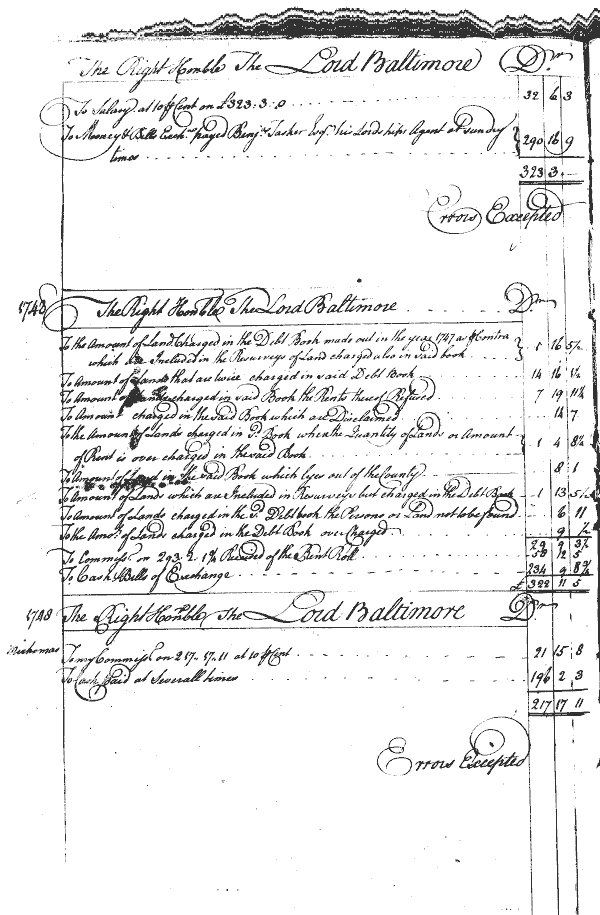 The Right Honble The Lord Baltimore Dr
To Salary at 10 ⅌ Cent on £323:3:0 32 6 3
To Mooney & Bills Exch. payed Benj. Tasker Esq. his Lordships Agent at sundry
times 290 16 9
323 3 —
Errors Excepted
1748 The Right Honble The Lord Baltimore Dr
To the Amount of Land Charged in the Debt Book made out in the year 1747 as ⅌ Contra
which are Included in the Resurveys of Land charged also in said book 1 16 5½
To Amount of Lands that are twice charged in said Debt Book 14 16 1½
To Amount of Lands charged in said Book the Rents thereof Refused 7 19 11¼
To Amount charged in the said Book which are Disclaimed 14 7
To the Amount of Lands charged in Sd. Book where the Quantity of Lands or Amount
of Rent is over charged in the said Book 1 4 8¼
To Amount of Land in the said Book which Lyes out of the County 8 1
To Amount of Lands which are Included in Resurveys but charged in the Debt Book 1 13 5½
To Amount of Lands charged in the Sd. Debt book the Persons or Land not to be found 6 11
To the Amo. of Lands charged in the Debt Book over Charged 9 ½
29 9 3½
To Commiss. on 293.2.1¾ Residue of the Rent Roll 58 12 5
To Cash & Bills of Exchange 234 9 8¾
£ 322 11 5
1748 The Right Honble The Lord Baltimore Dr
Michemas To my Commiss. on 217.17.11 at 10 ⅌ Cent 21 15 8
To Cash Paid at Severall times 196 2 3
217 17 11
Errors Excepted